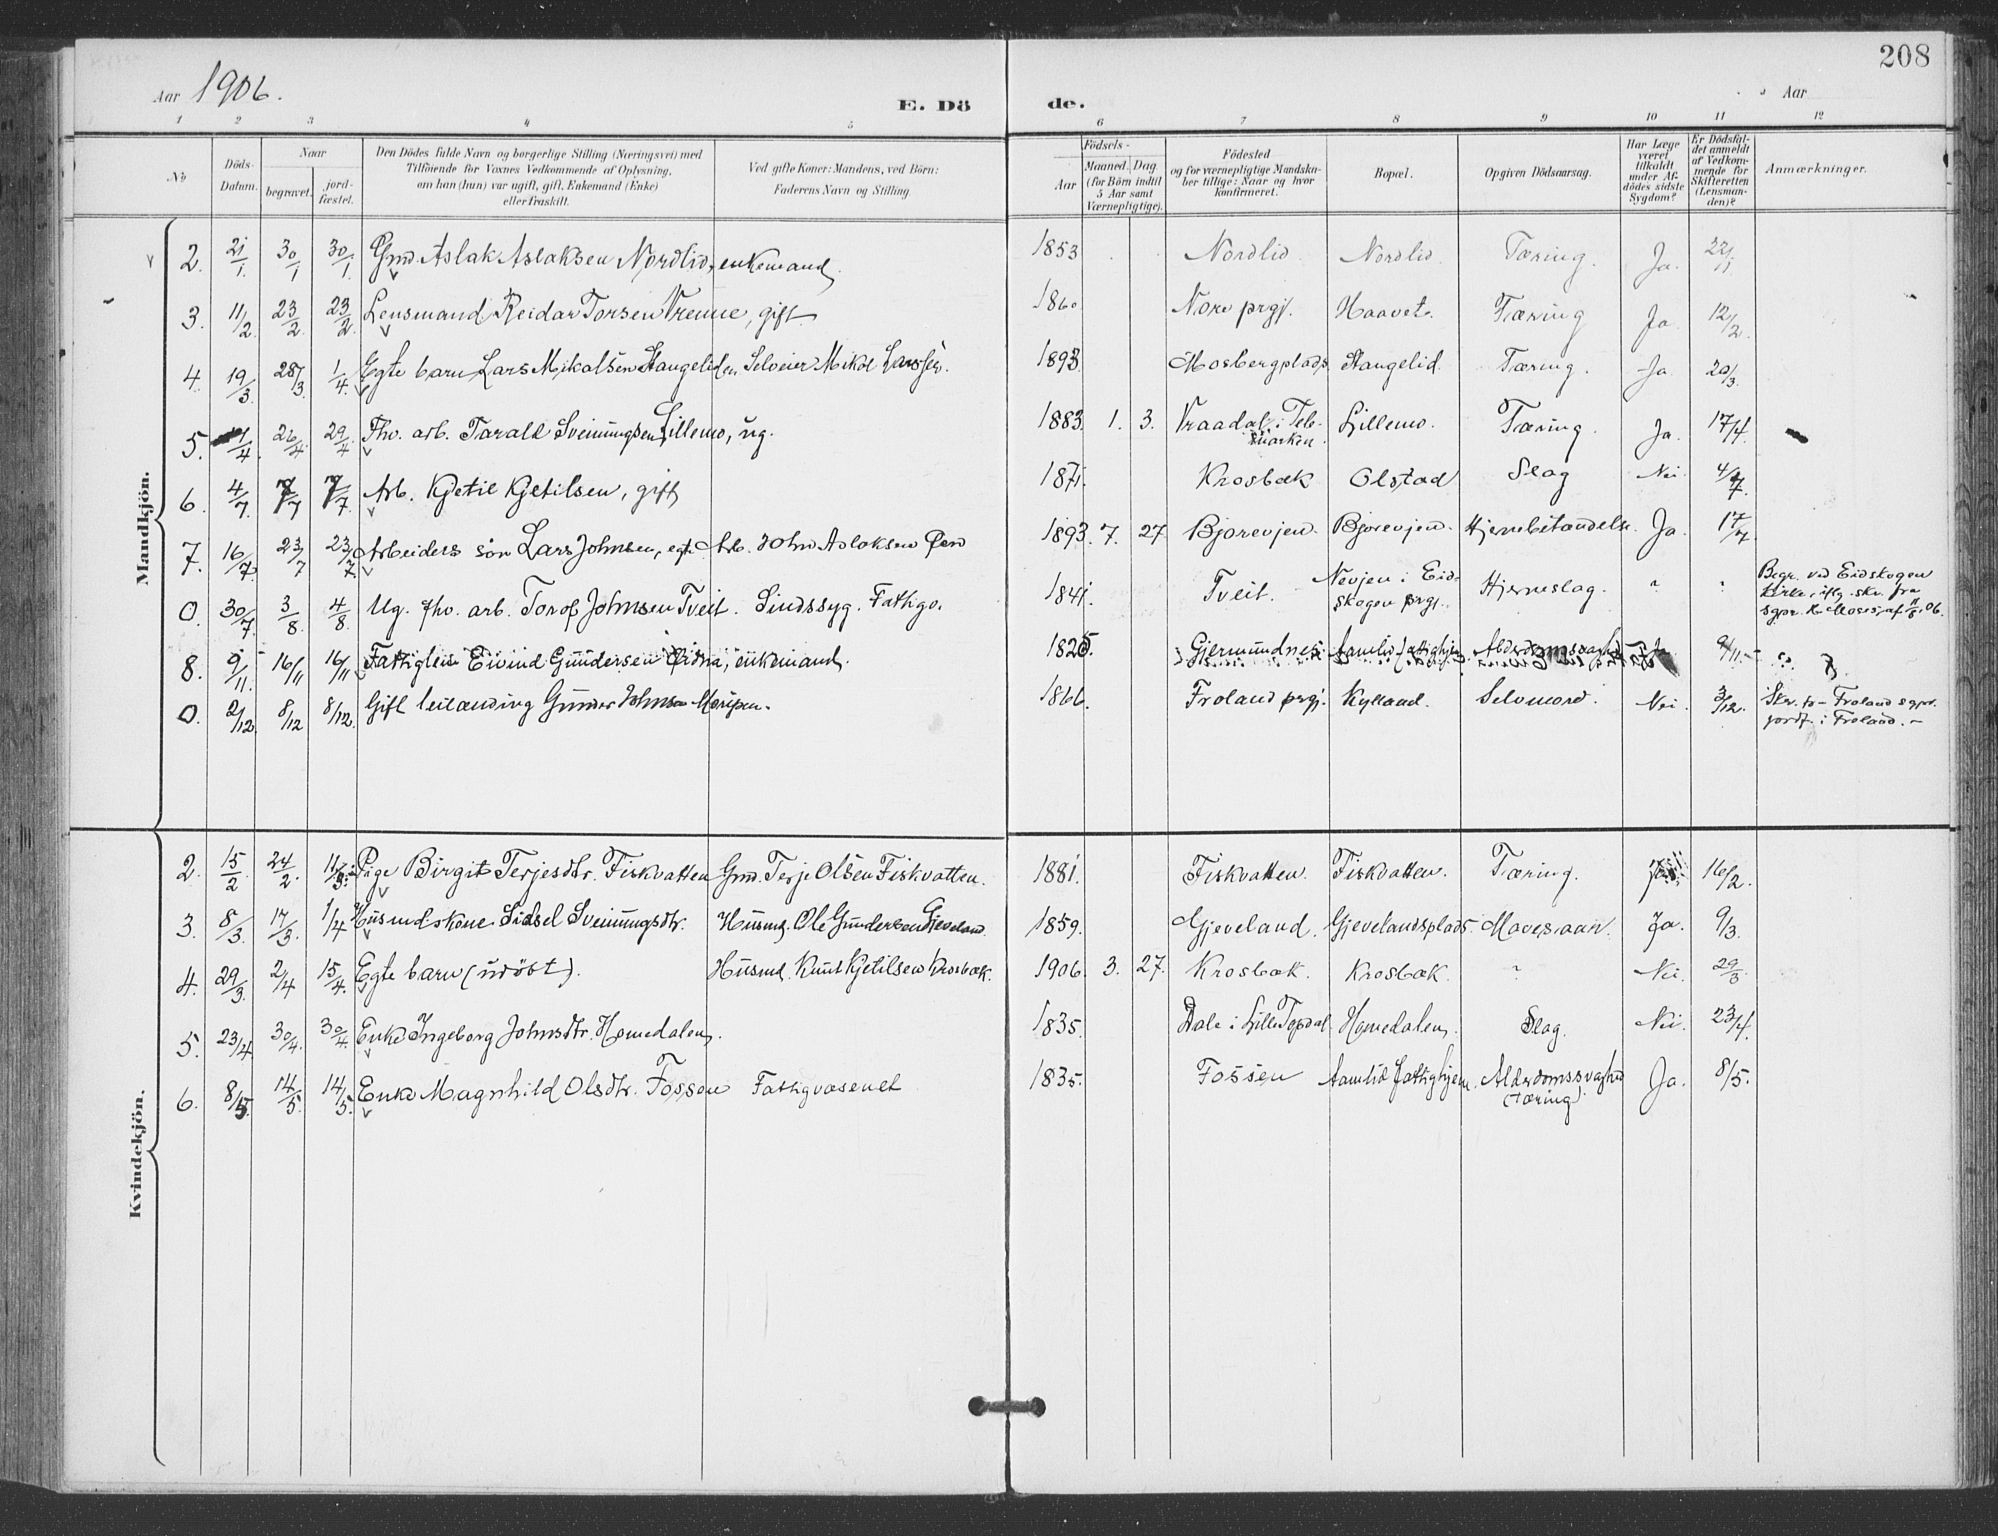 208
Aar 1906. E. Dö de. Aar
1 2 3 4 5 6 7 8 9 10 11 12
No Döds-Datum. Naar begravet. jord-fæstet. Den Dödes fulde Navn og borgerlige Stilling (Næringsvei) med Tilföiende for Voxnes Vedkommende af Oplysning, om han (hun) var ugift, gift, Enkemand (Enke) eller fraskilt. Ved gifte Koner: Mandens, ved Börn: Faderens Navn og Stilling. Födsels- Aar Maaned. Dag (for Börn indtil 5 Aar samt Værnepligtige). Födested og for værnepligtige Mandskaber tillige: Naar og hvor konfirmeret. Bopæl. Opgiven Dödsaarsag. Har Læge været tilkaldt under Afdödes sidste Sygdom? Er Dödsfaldet anmeldt af Vedkommende for Skifteretten (Lensmanden)? Anmærkninger.
Mandkjön.
2. 21/1. 30/1 30/1. Gmd. Aslak Aslaksen Nordlid, enkemand. 1853 Nordlid. Nordlid. Tæring. Ja.
3. 11/2 23/2 23/2 Lensmand Reidar Torsen Vrenne, gift 1860 Nore prgj. Haavet. Tæring Ja 12/2.
4. 19/3 28/3 1/4. Egte barn Lars Mikalsen Stangeliden Selveier Mikal Larssen. 1893. Mosbergplads Stangelid. Tæring. Ja. 20/3.
5. /4 26/4 29/4 Fhv. arb. Tarald Sveinungsen Lillemo, ug. 1883 1. 3. Vraadal i Tele-marken. Lillemo. Tæring. Ja. 17/4.
6. 4/7. 7/7 7/7. Arb. Kjetil Kjetilsen, gift 1871. Krosbæk Olstad Slag Nei. 4/7.
7. 16/7. 23/7 23/7. Arbeiders søn Lars Johnsen, egte Arb. John Aslaksen 1893. 7. 27 Bjorevjen. Bjorevjen. Hjernebetændelse. Ja. 17/7
0. 30/7 3/8. 4/8. Ug. fhv. arb. Torof Johnsen Tveit. Sindssyg. Fattigv. 1841. Tveit. Nevjen i Eid-skogen prgj. Hjerneslag. " " Begr. ved Eidskogen Kirke, iflg. skr. fra sgpr. 11/8 06.
8. 9/11. 16/11 16/11 Fattiglem Eivind Gundersen enkemand. 1825. Gjermundnes Aamlid fattighjem. Alderdomssvaghed 9/11.
0. 2/12. 8/12 8/12. Gift leilænding Gunder Johnsen 1866. Froland prgj. Kylland. Selvmord. Nei. 3/12. Skr. fr Froland sgpr. jordf. i Froland. -
Kvindekjön.
2. 15/2 24/2. Pige Birgit Terjesdtr. Fiskvatten Gmd. Terje Olsen Fiskvatten. 1881. Fiskvatten. Fiskvatten. Tæring. 16/2.
3. 8/3 17/3. 1/4 Husmdskone Sidsel Sveinungsdtr. Husmd. Ole Gundersen Gjeveland. 1859. Gjeveland. Gjevelandsplads. Mavesaar. Ja. 9/3.
4. 29/3 2/4 15/4. Egte barn (udöbt). Husmd. Knut Kjetilsen Krosbæk. 1906. 3. 27. Krosbæk. Krosbæk. " Nei. 29/3
5. 23/4 30/4. 30/4. Enke Ingeborg Johnsdtr. Homedalen. 1835. Dale i Lille Topdal Homedalen. Slag. Nei. 23/4.
6. 8/5. 14/5 14/5. Enke Magnhild Olsdtr. Fossen Fattigvæsenet 1835. Fossen Aamlid fattighjem. Alderdomssvaghed (tæring) Ja. 8/5.